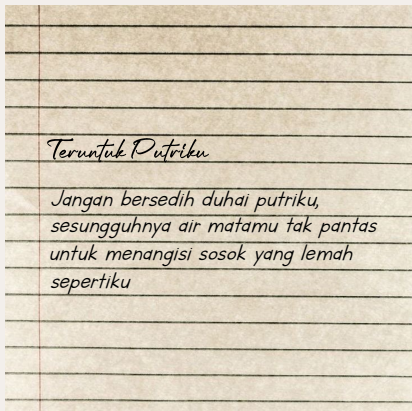 Teruntuk Putriku
Jangan bersedih duhai putriku,
sesungguhnya air matamu tak pantas
untuk menangisi sosok yang lemah
sepertiku